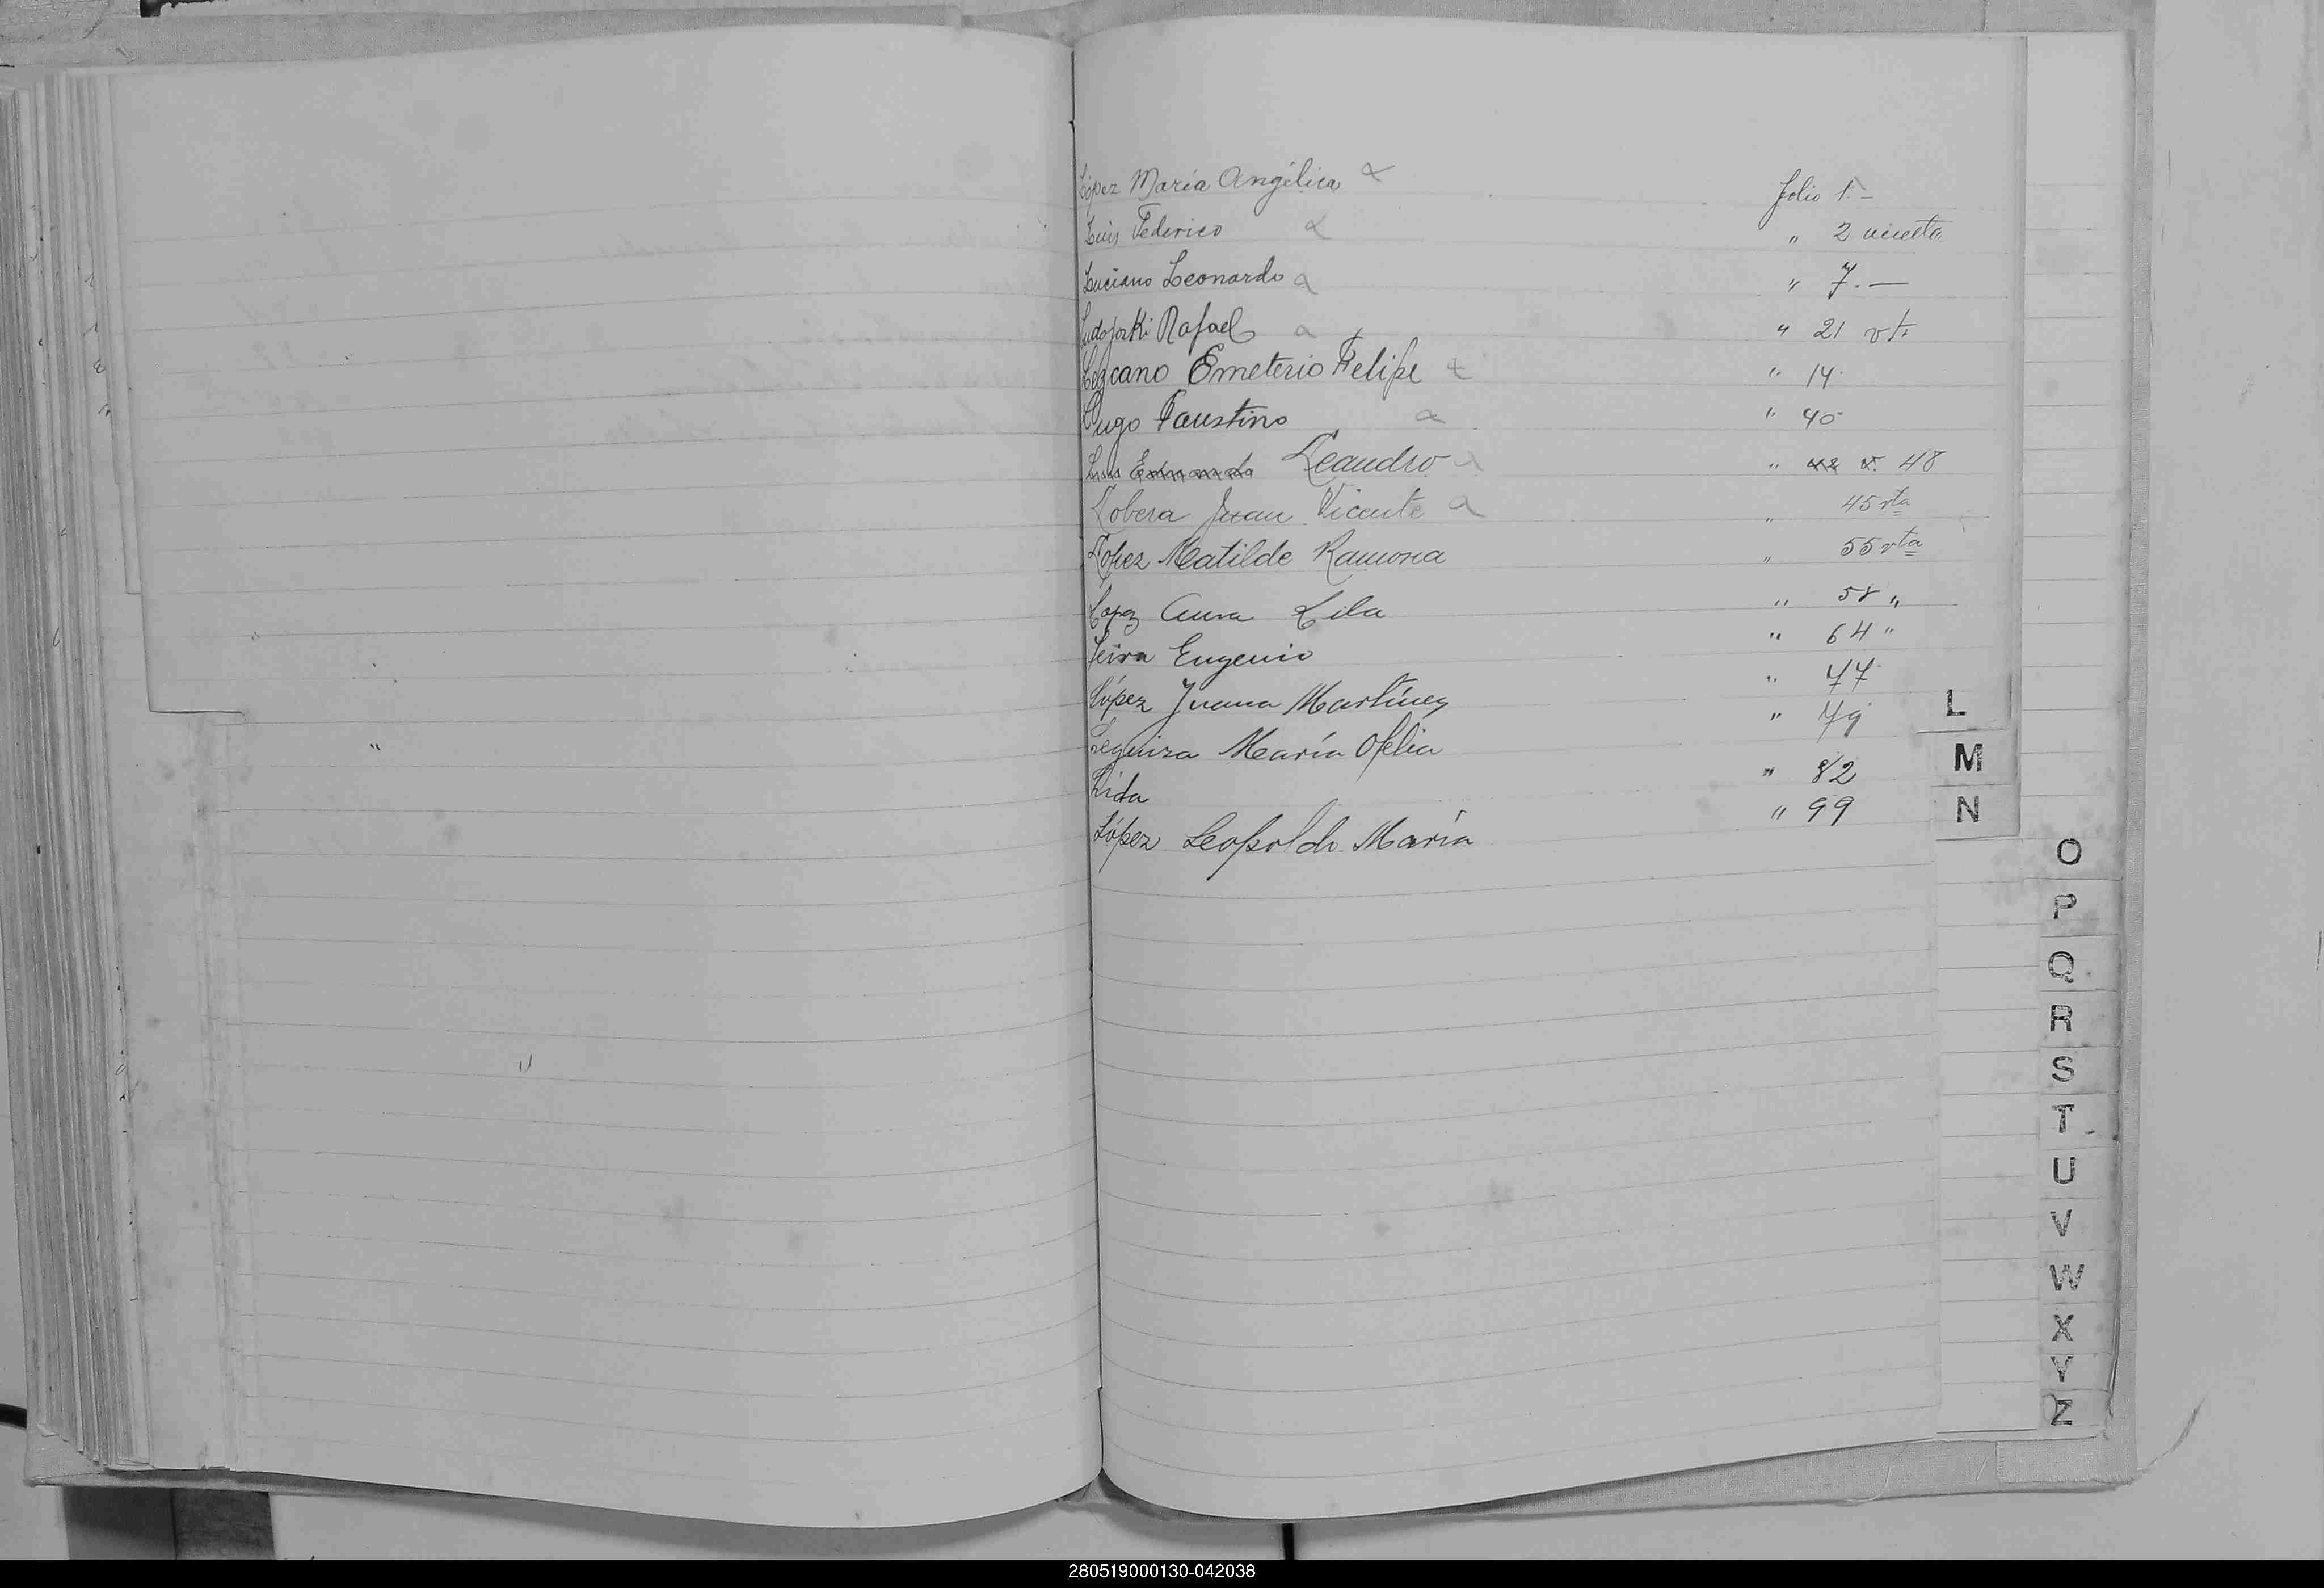 López María Angélica α folio 1.-
Luis Federico α " 2 vuelta
Luciano Leonardo a " 7.—
Rafael a " 21 vta
Lezcano Emeterio Felipe + " 14
Lugo Faustino a " 40
Luis Edmundo Leandro a " 42 v. 48
Lobera Juan Vicente a " 45 vta
López Matilde Ramona " 55 vta
Lopez Aura Lila " 58 "
Leiva Eugenio " 64 "
López Juana Martínez " 77
Leguiza María Ofelia " 79
Lida " 82
López Leopoldo María " 99
L
M
N
O
P
Q
R
S
T
U
V
W
X
Y
Z
280519000130-042038